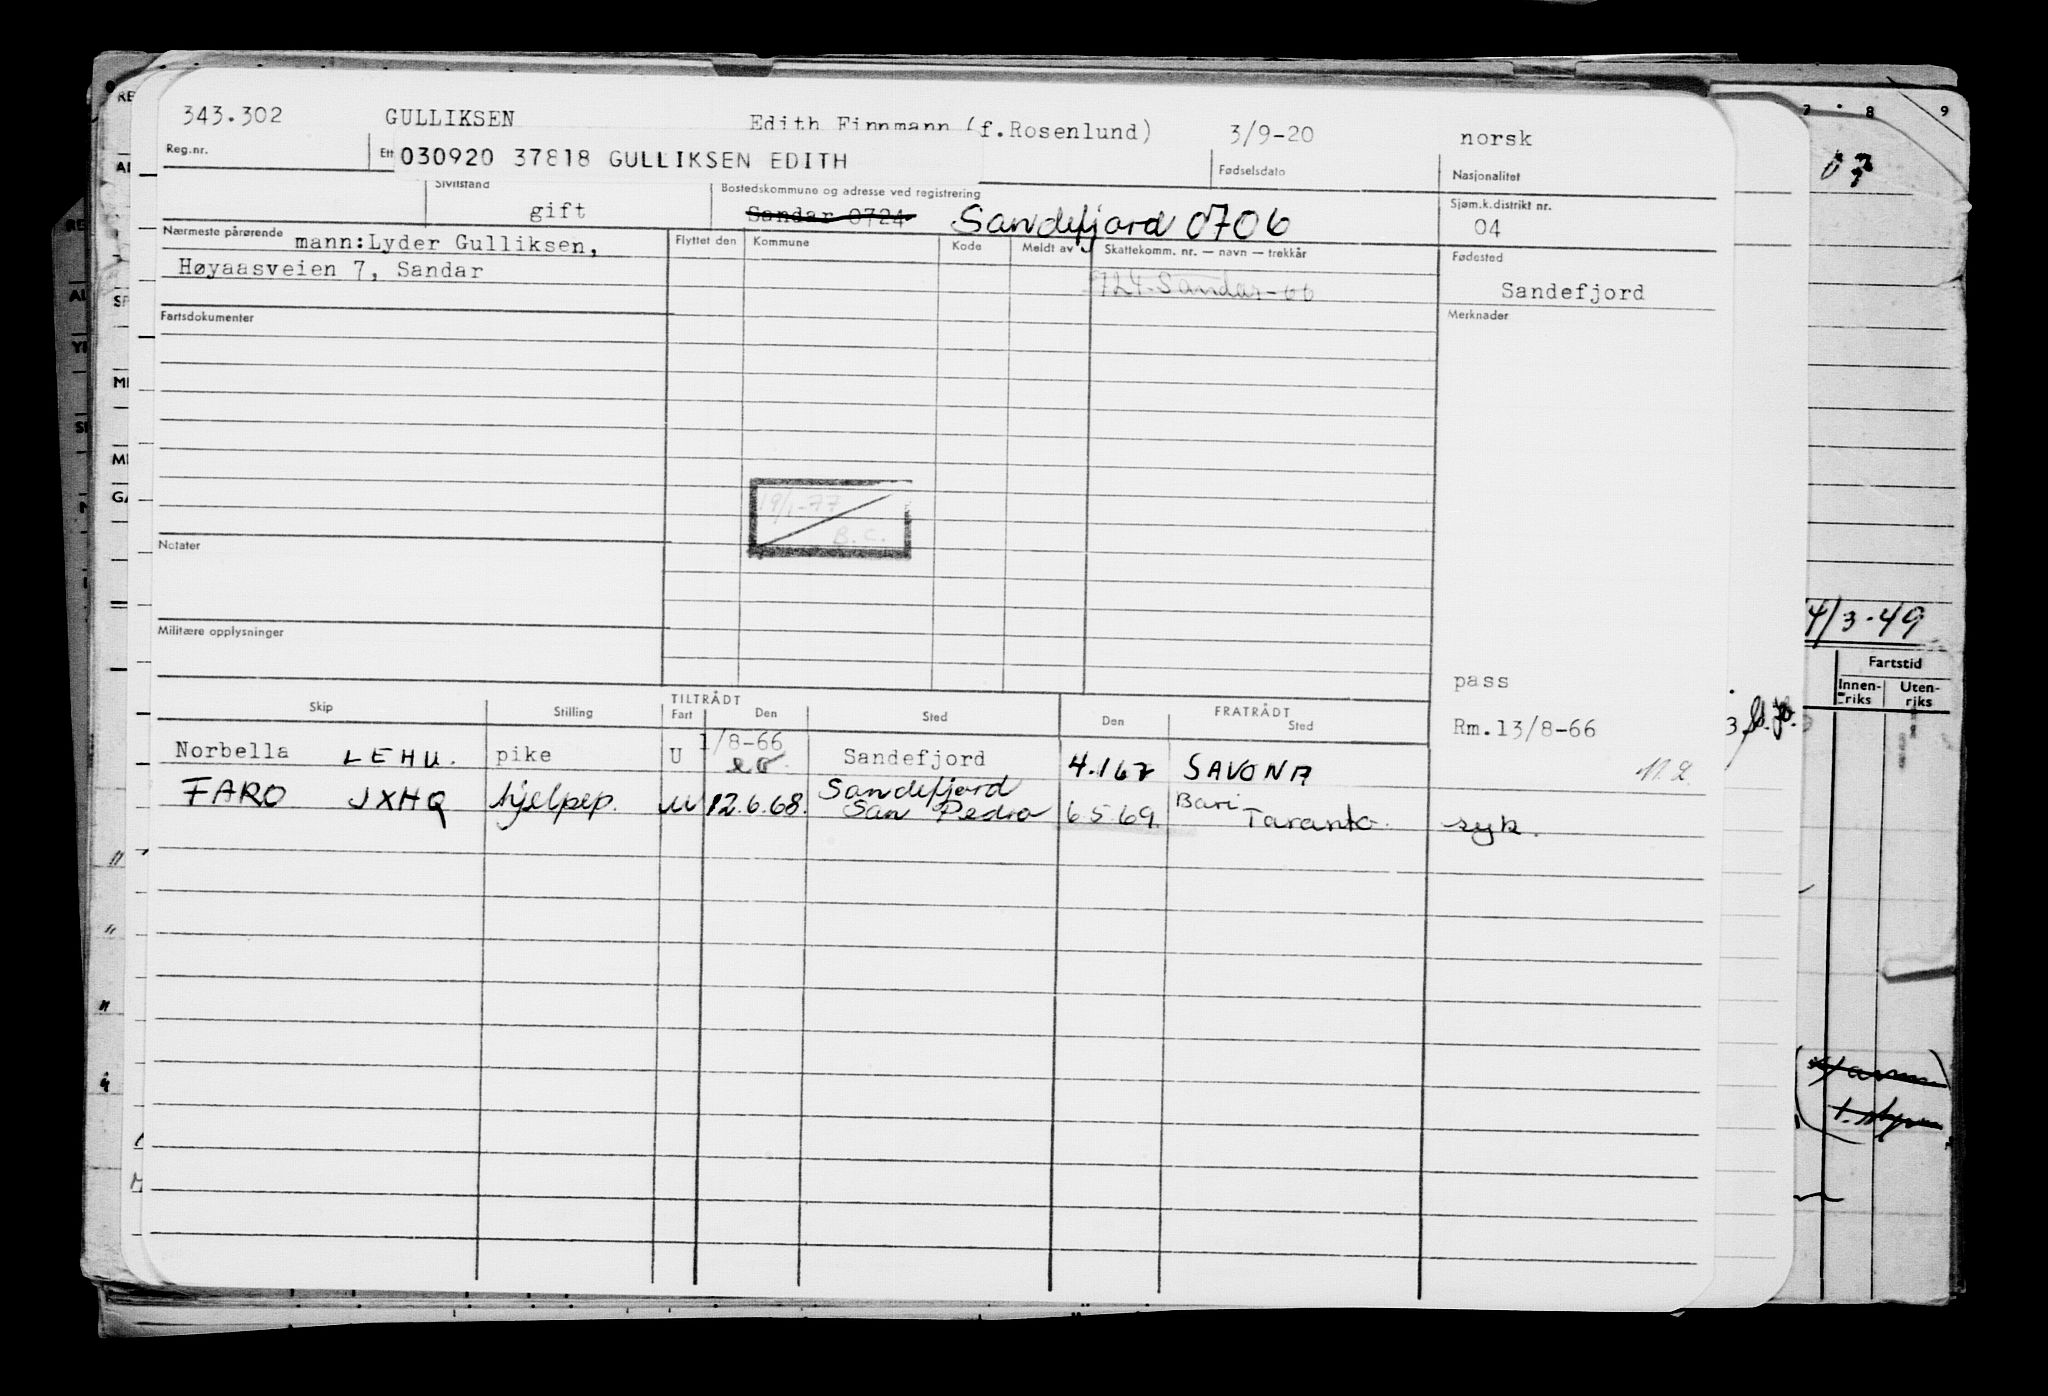 343.302 GULLIKSEN Edith Finnmann (f.Rosenlund) 3/9-20 norsk
Reg.nr. Ett 030920 37818 GULLIKSEN EDITH Fødselsdato Nasjonalitet
Sivilstand Bostedskommune og adresse ved registrering Sjøm.k.distrikt nr.
gift Sandar 0724 Sandefjord 0706 04
Nærmeste pårørende mann:Lyder Gulliksen, Flyttet den Kommune Kode Meldt av Skattekomm. nr. — navn — trekkår Fødested
Høyaasveien 7, Sandar 0724 Sandar-66 Sandefjord
Fartsdokumenter Merknader
19/1-77
B.C.
Notater
Militære opplysninger
4/3-49
Fartstid
Innen-riks Uten-riks
pass
TILTRÅDT FRATRÅDT
Skip Stilling Fart Den Sted Den Sted Rm.13/8-66
Norbella LEHU. pike U 1/8-66 Sandefjord 4.1 67 SAVONA
FARO JXHQ hjelpep. U 12.6.68. Sandefjord San Pedro 6.5.69. Bari Taranto. syk.